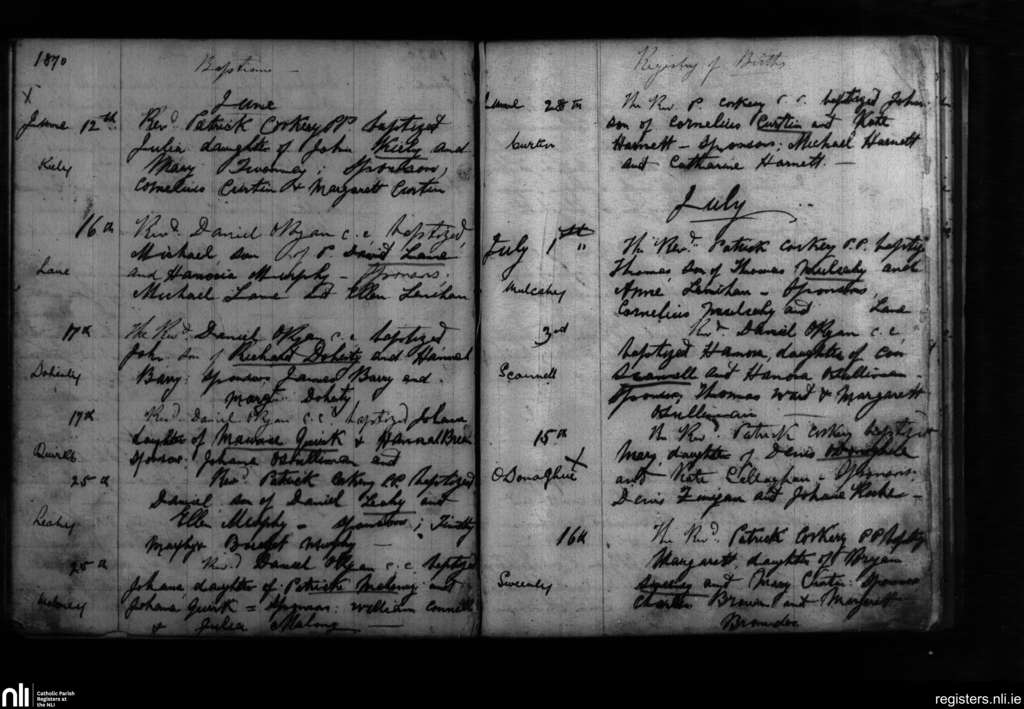 1870
Baptisms —
June
X
June 12th Revd. Patrick Corkery PP. baptized
Julia daughter of John Kiely and
Kiely
Mary Twomey; Sponsors,
Cornelius Curtin & Margarett Curtin
16th Revd. Daniel O'Ryan c.c. baptized
Michael, son of P. David Lane
Lane
and Hanoria Murphy — Sponsors:
Michael Lane and Ellen Lenihan
17th The Revd. Daniel O'Ryan c.c. baptized
John son of Richard Doherty and Hannah
Doherty
Barry; Sponsors James Barry and
Margt Doherty
17th Revd. Daniel O'Ryan c.c. baptized Johana
daughter of Maurice Quirk & Hannah
Quirke
Sponsors: Johana O'Sullivan and
25th Revd. Patrick Corkery P.P. baptized
Daniel son of Daniel Leahy and
Leahy
Ellen Murphy — Sponsors; Timothy
Murphy & Bridget Murphy
25th Revd. Daniel O'Ryan c.c. baptized
Johana, daughter of Patrick Maloney and
Moloney
Johana Quirk = Sponsors: William
& Julia Malony —
Registry of Births
June 28th The Rev P. Corkery c.c. baptized John
son of Cornelius Curtin and Kate
Curtin
Harnett — Sponsors; Michael Harnett
and Catharine Harnett. —
July
July 1st " The Revd. Patrick Corkery P.P. baptized
Thomas son of Thomas Mulcahy and
Mulcahy
Anne Lenihan — Sponsors
Cornelius Mulcahy and Lane
3rd Revd. Daniel O'Ryan c.c.
baptized Hanora, daughter of Con
Scannell
Scannell and Hanora O'Sullivan —
Sponsors, Thomas Ward & Margarett
O'Sullivan —
15th The Revd. Patrick Corkery baptized
Mary, daughter of Denis O'Donoghue
O'Donoghue X
and Kate Callaghan — Sponsors:
Denis Finigan and Johana Roche —
16th The Revd. Patrick Corkery P.P. baptized
Margarett, daughter of Bryan
Sweeney
Sweeney and Mary Curtin: Sponsors
Charles Brown and Margarett
nli
Catholic Parish
Registers at
the NLI
registers.nli.ie